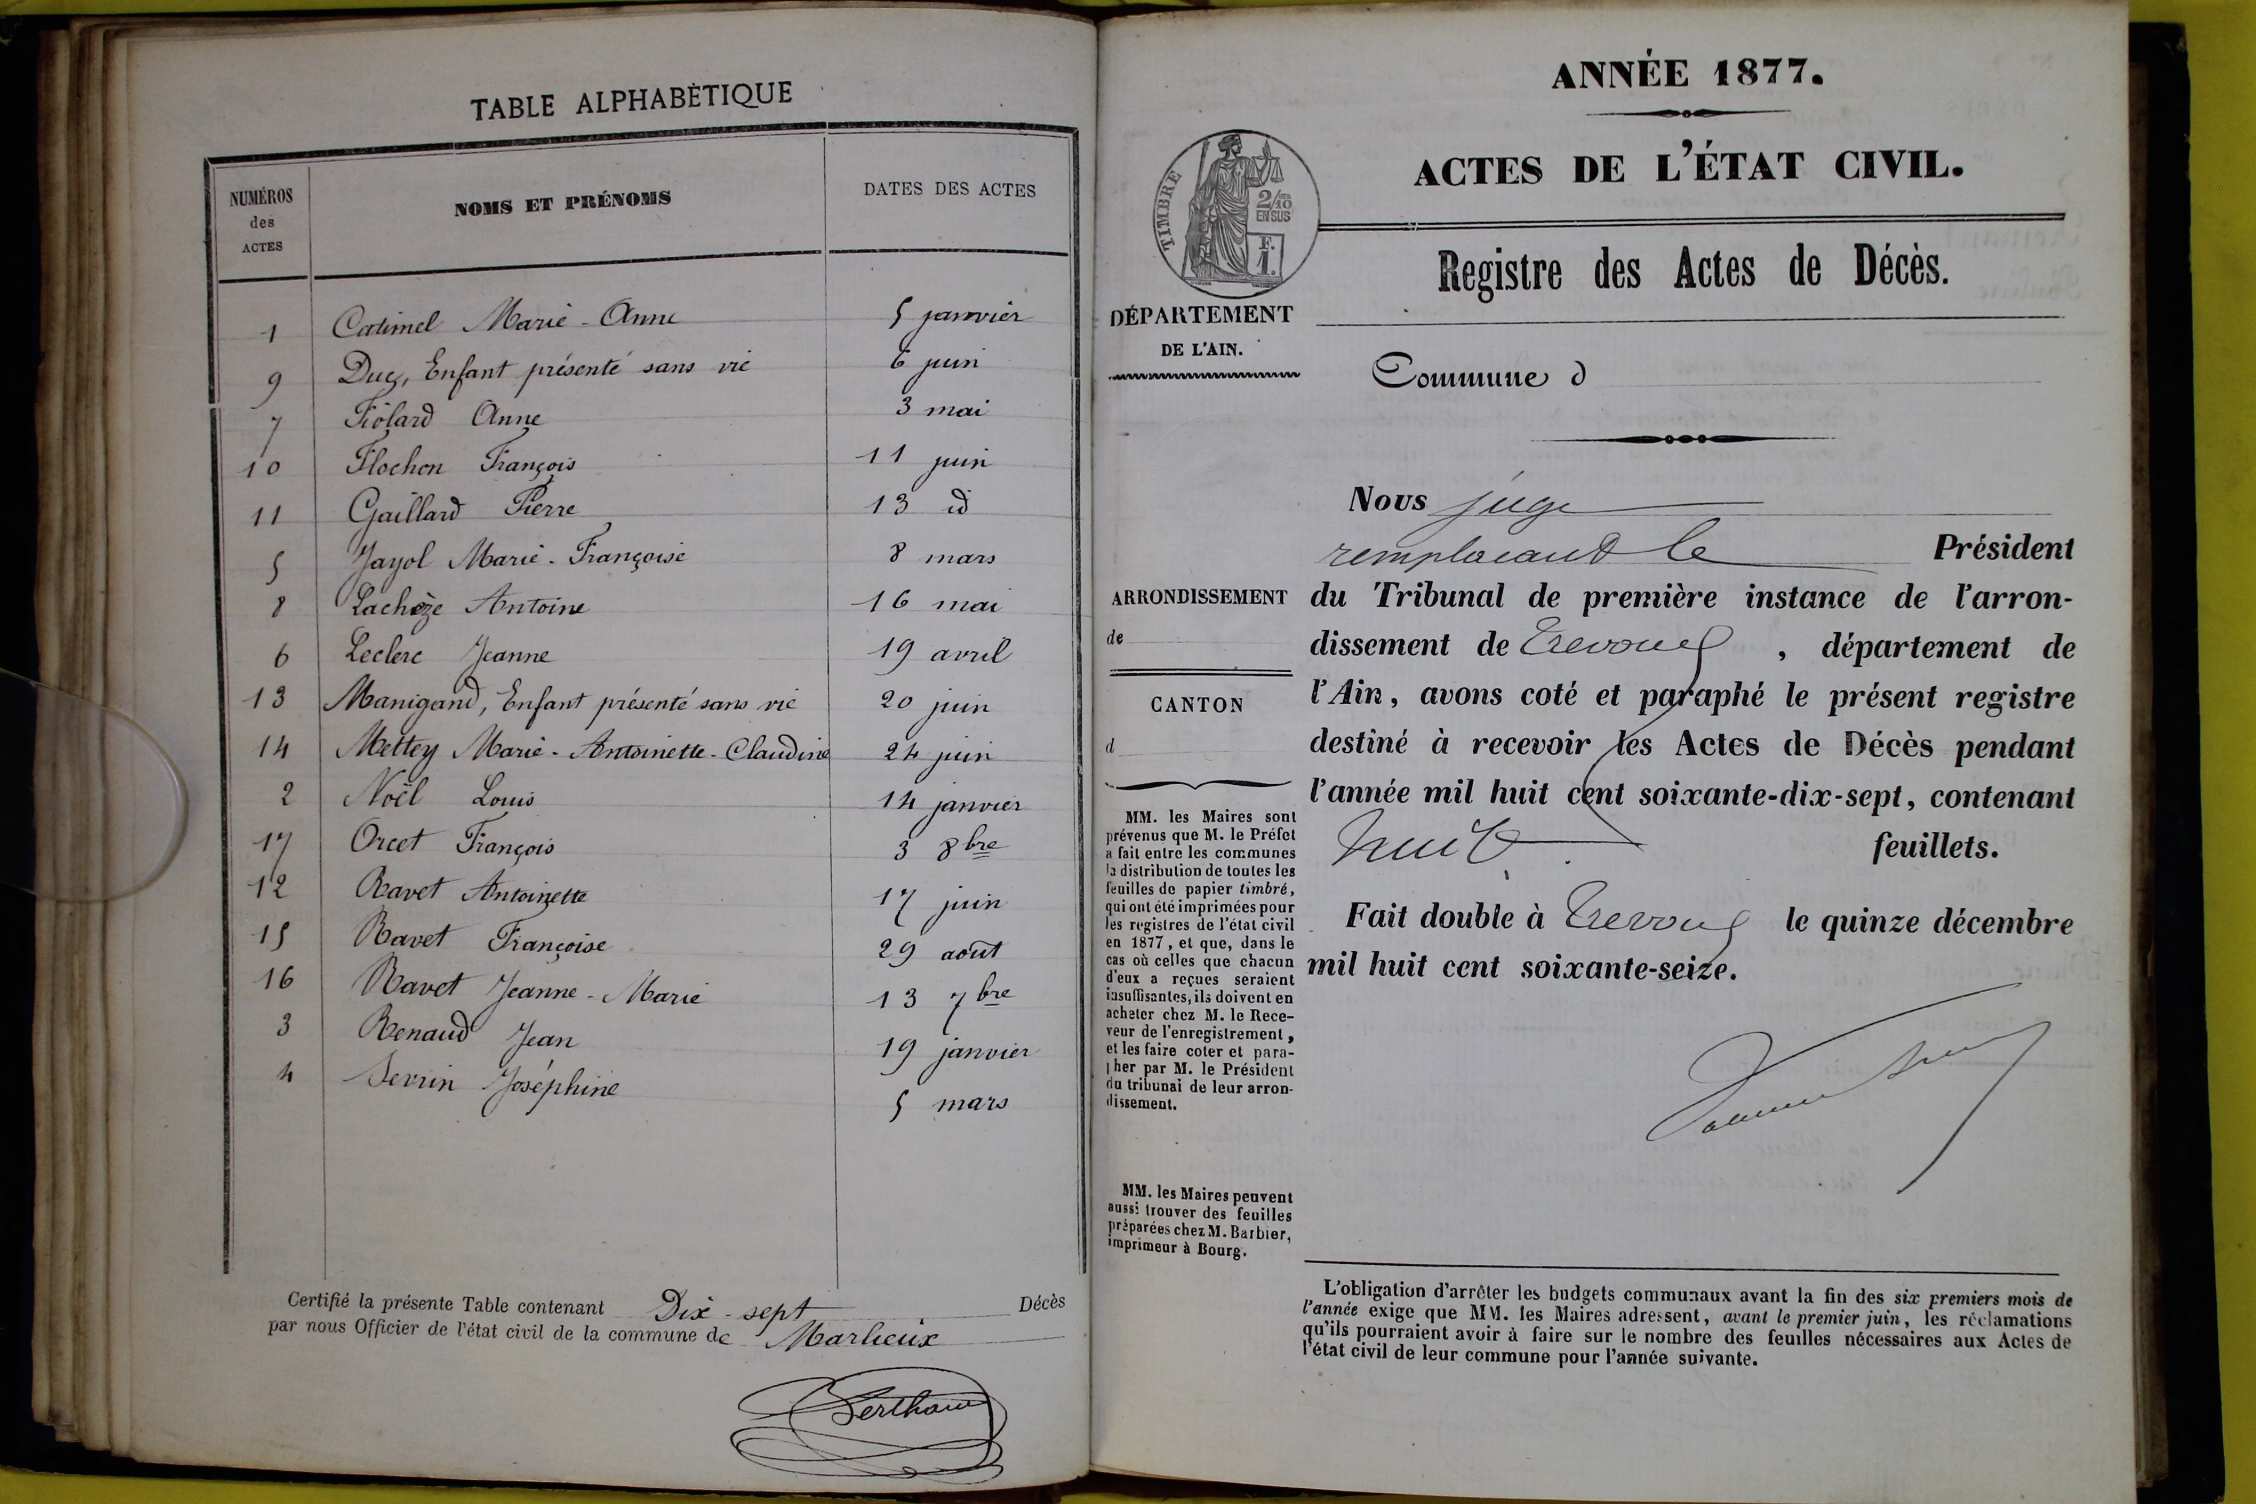 TABLE ALPHABÈTIQUE
NUMÉROS des ACTES | NOMS ET PRÉNOMS | DATES DES ACTES
1 Catimel Marie-Anne 5 janvier
9 Duc, Enfant présenté sans vie 6 juin
7 Fiolard Anne 3 mai
10 Flochon François 11 juin
11 Gaillard Pierre 13 id
5 Jayol Marie-Françoise 8 mars
8 Lachèze Antoine 16 mai
6 Leclerc Jeanne 19 avril
13 Manigand, Enfant présenté sans vie 20 juin
14 Mettey Marie-Antoinette-Claudine 24 juin
2 Noël Louis 14 janvier
17 Orcet François 3 8bre
12 Ravet Antoinette 17 juin
15 Ravet Françoise 29 août
16 Ravet Jeanne-Marie 13 7bre
3 Renaud Jean 19 janvier
4 Serrin Joséphine 5 mars
Certifié la présente Table contenant Dix-sept Décès
par nous Officier de l'état civil de la commune de Marlieux
ANNÉE 1877.
ACTES DE L'ÉTAT CIVIL.
TIMBRE
2/10
EN SUS
F.
1.
Registre des Actes de Décès.
DÉPARTEMENT
DE L'AIN.
Commune d
Nous juge
remplacant le Président
ARRONDISSEMENT
de
CANTON
d
du Tribunal de première instance de l'arron-
dissement de Trevoux, département de
l'Ain, avons coté et paraphé le présent registre
destiné à recevoir les Actes de Décès pendant
l'année mil huit cent soixante-dix-sept, contenant
huit feuillets.
Fait double à Trevoux le quinze décembre
mil huit cent soixante-seize.
MM. les Maires sont
prévenus que M. le Préfet
a fait entre les communes
la distribution de toutes les
feuilles de papier timbré,
qui ont été imprimées pour
les registres de l'état civil
en 1877, et que, dans le
cas où celles que chacun
d'eux a reçues seraient
insuffisantes, ils doivent en
acheter chez M. le Rece-
veur de l'enregistrement,
et les faire coter et para-
pher par M. le Président
du tribunal de leur arron-
dissement.
MM. les Maires peuvent
aussi trouver des feuilles
préparées chez M. Barbier,
imprimeur à Bourg.
L'obligation d'arrêter les budgets communaux avant la fin des six premiers mois de
l'année exige que MM. les Maires adressent, avant le premier juin, les réclamations
qu'ils pourraient avoir à faire sur le nombre des feuilles nécessaires aux Actes de
l'état civil de leur commune pour l'année suivante.